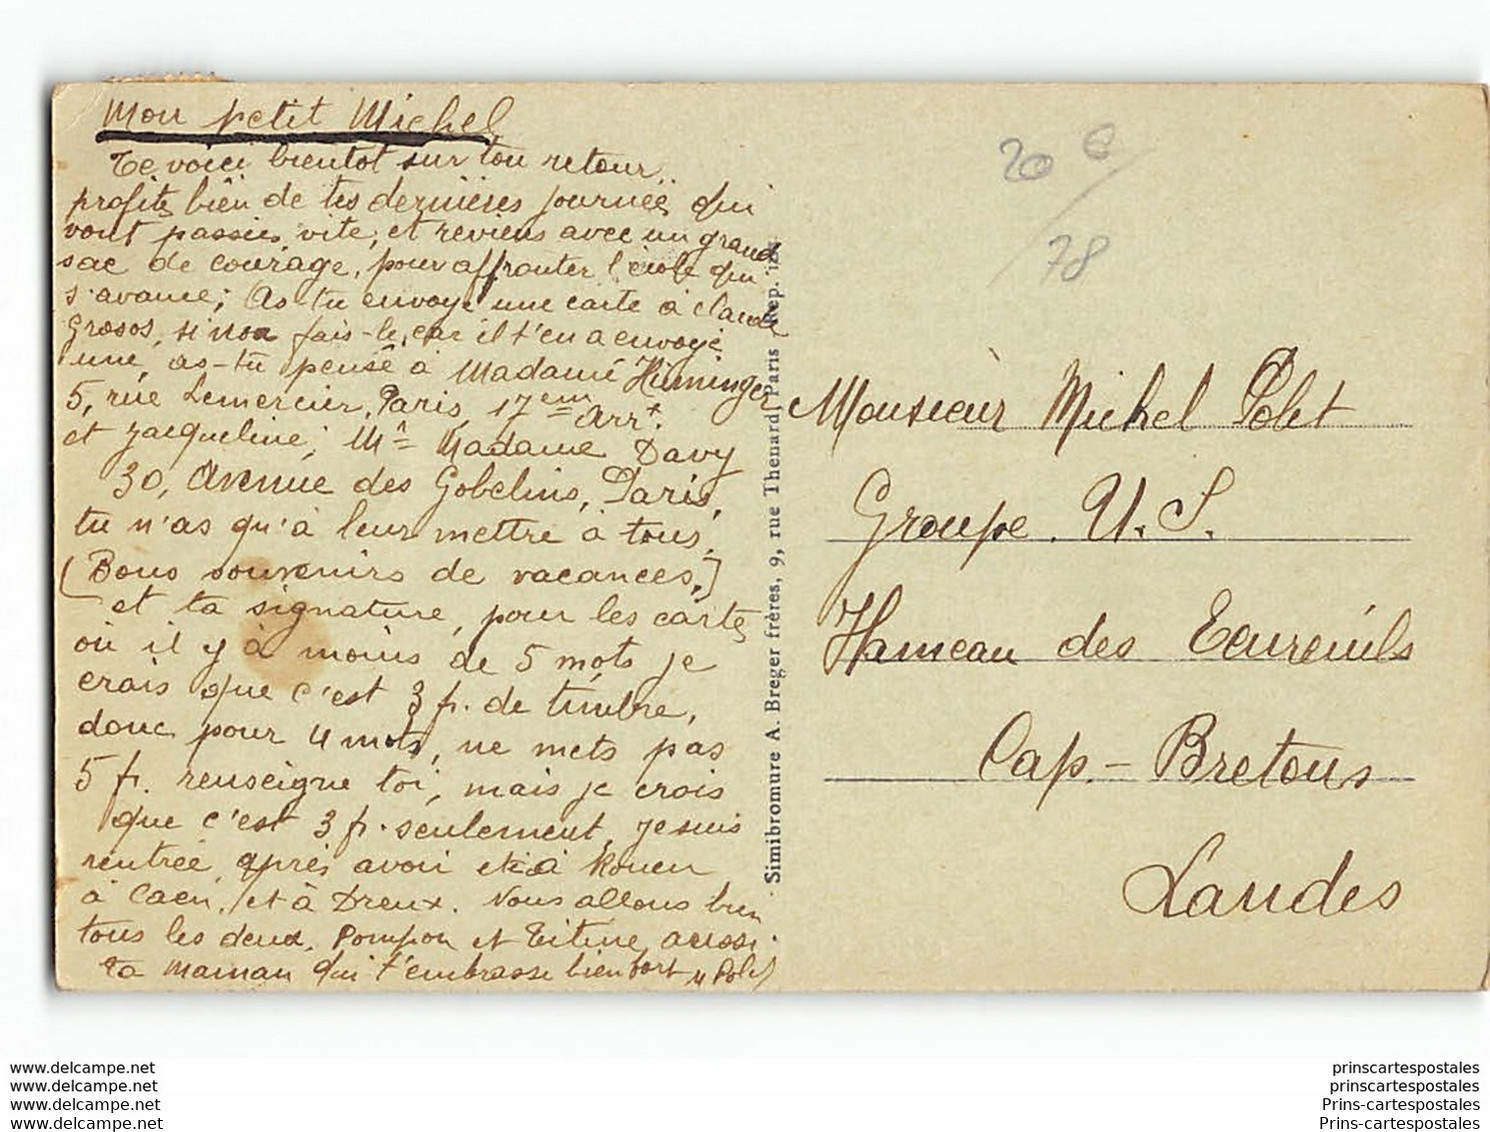 Mon petit Michel
Te voici bientot sur ton retour,
profite bien de tes dernières journée qui
vont passées vite, et reviens avec un grand
sac de courage, pour affronter l'école qui
s'avance; As-tu envoyé une carte à Claude
Grosos, si non fais-le, car il t'en a envoyé
une, as-tu pensé à Madame Huninger
5, rue Lemercier, Paris, 17em Arrt.
et Jacqueline; Madame Davy
30, Avenue des Gobelins, Paris,
tu n'as qu'à leur mettre à tous,
(Bons souvenirs de vacances,)
et ta signature, pour les cartes
où il y à moins de 5 mots je
crais que c'est 3 fr. de timbre,
donc pour 4 mots, ne mets pas
5 fr. renseigne toi, mais je crois
que c'est 3 fr. seulement, je suis
rentrée, après avoir été à Rouen
à Caen, et à Dreux. Nous allons bien
tous les deux, Pompon et Titine aussi.
Ta Maman qui t'embrasse bien fort M Polet
Simibromure A. Breger frères, 9, rue Thenard, Paris Rep. in
20 €
78
Monsieur Michel Polet
Groupe U.S.
Hameau des Ecureuils
Cap-Bretons
Landes
www.delcampe.net
www.delcampe.net
www.delcampe.net
www.delcampe.net
prinscartespostales
prinscartespostales
Prins-cartespostales
Prins-cartespostales